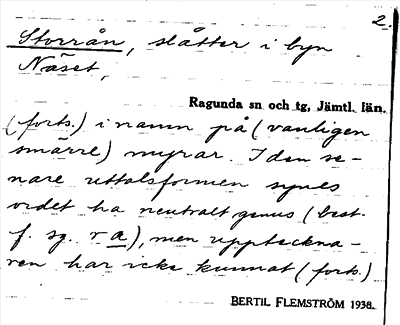 2.
Storrån, slåtter i byn
Näset,
Ragunda sn och tg, Jämtl. län.
(forts.) i namn på (vanligen
smärre) myrar. I den se-
nare uttalsformen synes
ordet ha neutralt genus (best.
f. sg. r a), men uppteckna-
ren har icke kunnat (forts.)
BERTIL FLEMSTRÖM 1938.